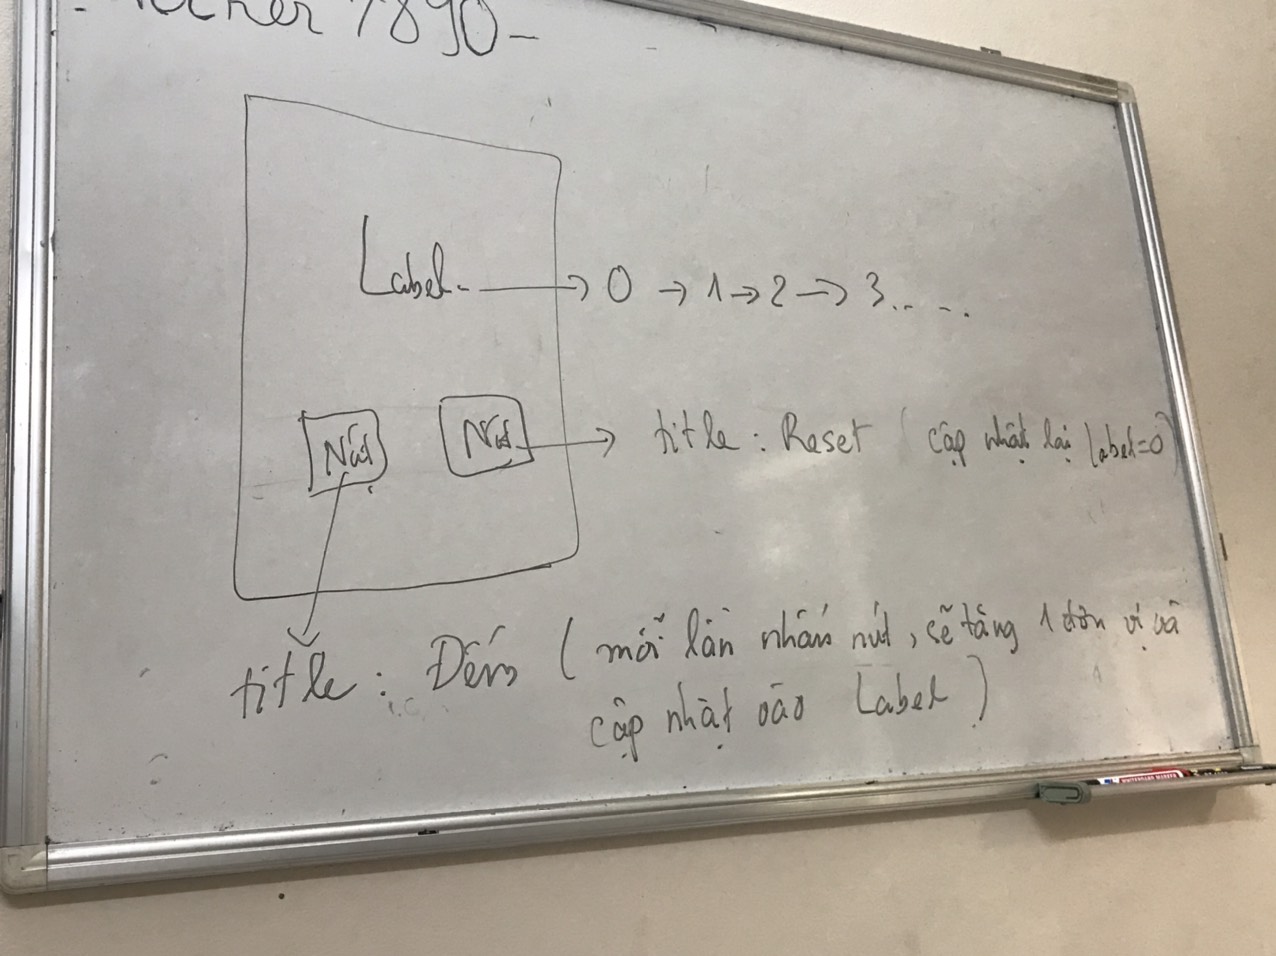 7890-
Label - → 0 → 1 → 2 → 3......
Nút
Nút → title : Reset (cập nhật lại Label=0)
title : Đếm (mỗi lần nhấn nút, sẽ tăng 1 đơn vị và
cập nhật vào Label)
WHITEBOARD MARKER